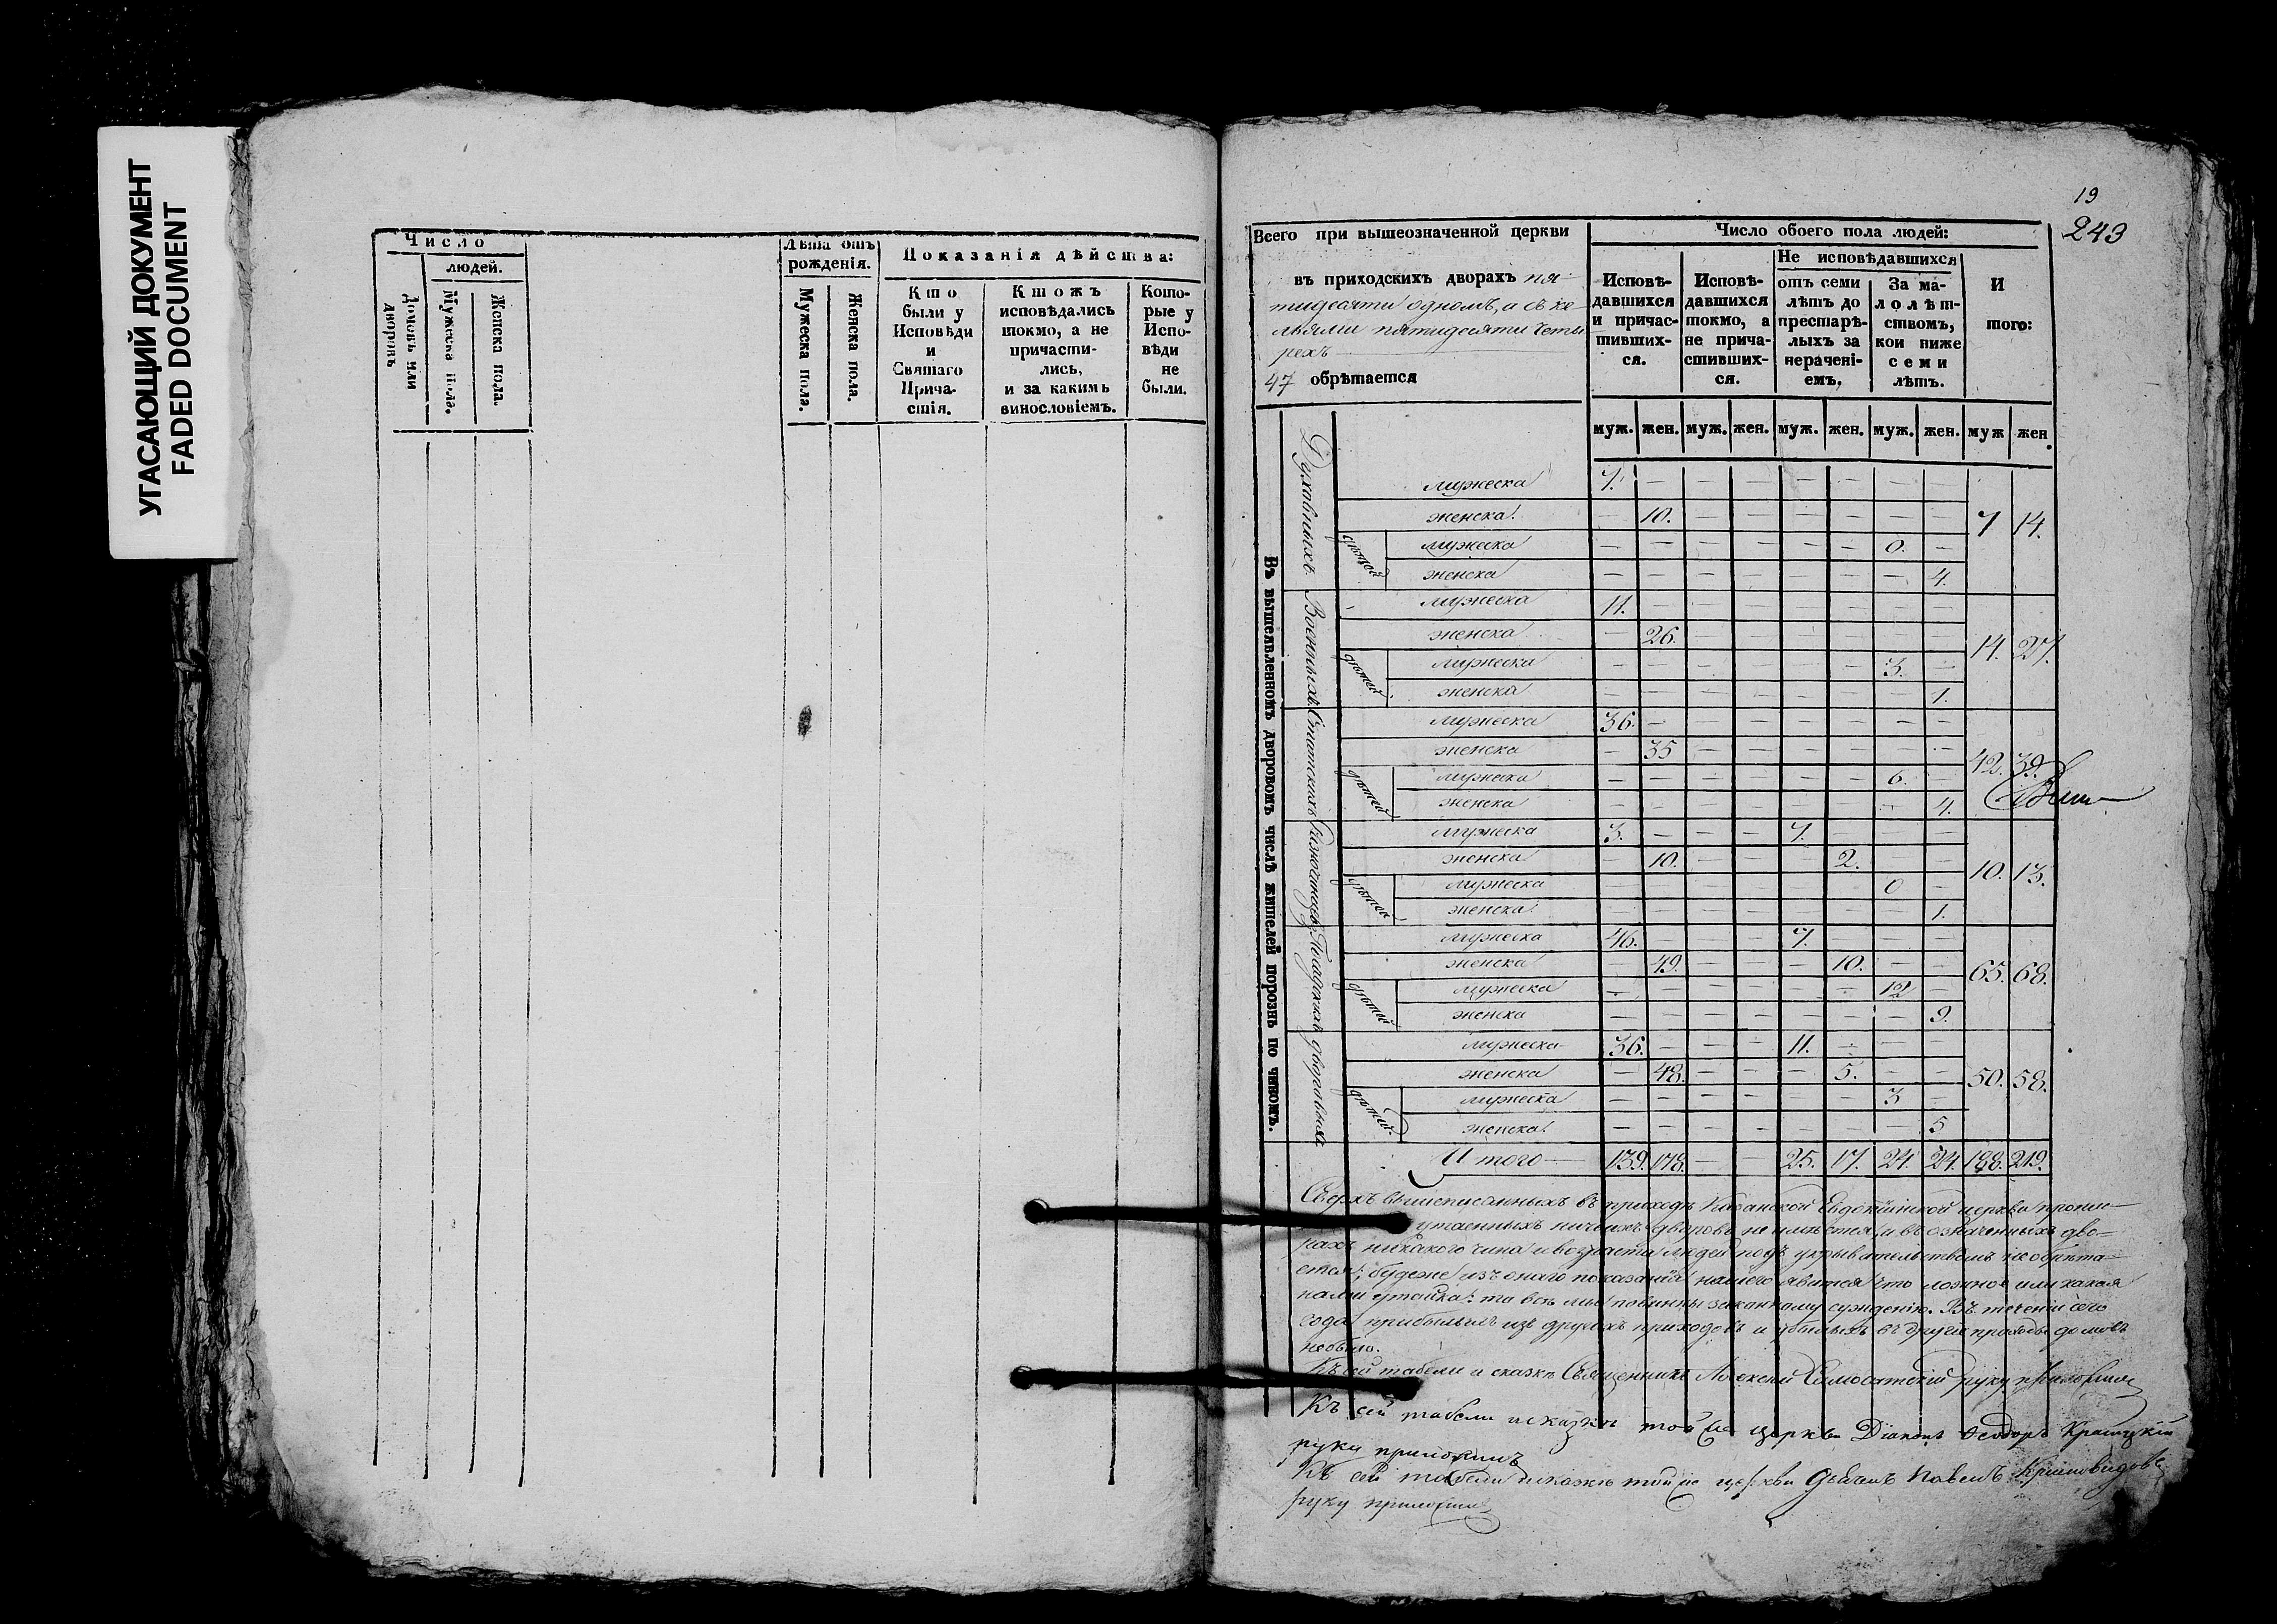 УГАСАЮЩИЙ ДОКУМЕНТ
FADED DOCUMENT
Число
людей.
Домовъ или дворовъ
Мужеска пола.
Женска пола.
Лѣта отъ рожденія.
Мужеска пола.
Женска пола.
Показанія дѣйства:
Кто
были у
Исповѣди
и
Святаго
Прича-
стія.
Ктожъ
исповѣдались
токмо, а не
причасти-
лись,
и за какимъ
винословіемъ.
Кото-
рые у
Испо-
вѣди
не
были.
19
243
Всего при вышеозначенной церкви
въ приходскихъ дворахъ пя-
тидесяти одномъ, а съ ке-
льями пятидесяти четы
рехъ
47 обрѣтается
Число обоего пола людей:
Исповѣ-
давшихся
и причас-
тивших-
ся.
Исповѣ-
давшихся
токмо, а
не прича-
стивших-
ся.
Не исповѣдавшихся
отъ семи
лѣтъ до
престарѣ-
лыхъ за
нерачені-
емъ,
За ма-
лолѣт-
ствомъ,
кои ниже
семи
лѣтъ.
И
того:
муж. жен. муж. жен. муж. жен. муж. жен. муж жен.
Въ вышеявленномъ дворовомъ числѣ жителей порознь по чиномъ.
Духовныхъ
мужеска 7. — — — — — — —
женска. — 10. — — — — — — 7 14.
дѣтей
мужеска — — — — — — 0. —
женска — — — — — — — 4.
Военныхъ
мужеска 11. — — — — — — —
женска — 26. — — — — — — 14. 27.
дѣтей
мужеска — — — — — — 3. —
женска — — — — — — — 1.
Статскихъ
мужеска 36. — — — — — — —
женска — 35 — — — — — — 42. 39.
дѣтей
мужеска — — — — — — 6. —
женска — — — — — — — 4.
мужеска 3. — — — 7. — — —
женска — 10. — — — 2. — — 10. 13.
дѣтей
мужеска — — — — — — 0 —
женска. — — — — — — — 1.
мужеска 46. — — — 7. — — —
женска — 49. — — — 10. — — 65. 68.
дѣтей
мужеска — — — — — — 12 —
женска — — — — — — — 9.
дворовыхъ
мужеска 36. — — — 11. — — —
женска — 48. — — — 5. — — 50. 58.
дѣтей
мужеска — — — — — — 3 —
женска. — — — — — — — 5
Итого 139. 178. — — 25. 17. 24. 24. 188. 219.
Сверхъ вышеписанныхъ въ приходѣ Казанской Евдокіинской церкви пропи-
утаенныхъ ничьихъ дворовъ не имѣется, и въ означенныхъ дво-
рахъ никакого чина и возраста людей подъ укрывательствомъ не обрѣта-
ется; будеже изъ онаго показанія нашего явится что ложное или какая
нами утайка: то всѣ мы повинны законному сужденію. Въ теченіи сего
года прибылыхъ изъ другихъ приходовъ и убылыхъ въ другіе приходы домовъ
небыло.
Къ сей табели и сказкѣ Священникъ Алексѣй Самосатскій руку приложилъ
Къ сей табели и сказкѣ той же церкви Діаконъ Ѳеодоръ
руку приложилъ
Къ сей табели и сказкѣ той же церкви Дьячекъ Павелъ
руку приложилъ